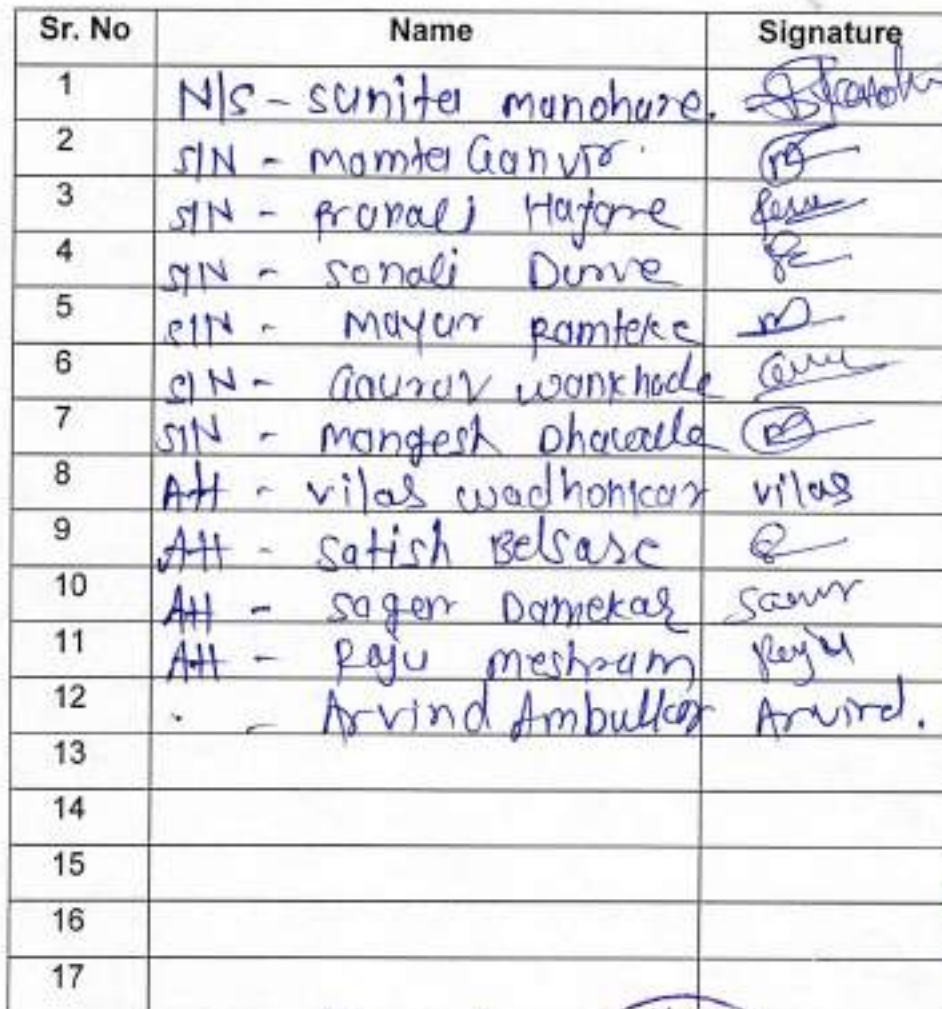 Sr. No Name Signature
1 N/S - sunita manohare.
2 S/N - mamta Ganvir
3 S/N - pranali Hajare
4 S/N - sonali Durve
5 S/N - Mayur Ramteke
6 S/N - Gaurav wankhade
7 S/N - mangesh
8 AH - vilas wadhonkar vilas
9 AH - satish Belsare
10 AH - sager Damekar
11 AH - Raju meshram Raju
12 - Arvind Ambulkar Arvind.
13
14
15
16
17